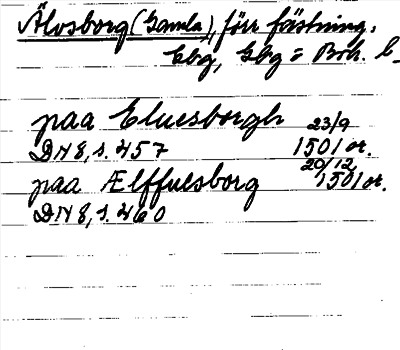 Älvsborg (Gamla), förr fästning.
Gbg, Gbg o Boh. l.
paa Eluesborgh 23/9
DN 8, s. 457 1501 or.
paa Ælffuesborg 20/12 1501 or.
DN 8, s. 460